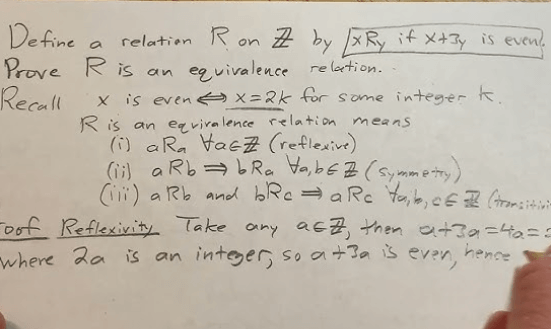 Define a relation R on ℤ by xRy if x+3y is even.
Prove R is an equivalence relation.
Recall x is even ⟺ x=2k for some integer k.
R is an equivalence relation means
(i) aRa ∀a∈ℤ (reflexive)
(ii) aRb ⟹ bRa ∀a,b∈ℤ (symmetry)
(iii) aRb and bRc ⟹ aRc ∀a,b,c∈ℤ (transitivi
roof Reflexivity Take any a∈ℤ, then a+3a=4a=2
where 2a is an integer, so a+3a is even, hence